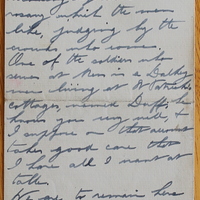 rosary which the men
like, judging by the
crowds who come.
One of the soldiers who
serves at Mass is a Dalkey
man living at St Patrick's
cottages, named Duff, he
knows you very well, &
I suppose on that account
takes good care that
I have all I want at
table.
We are to remain here